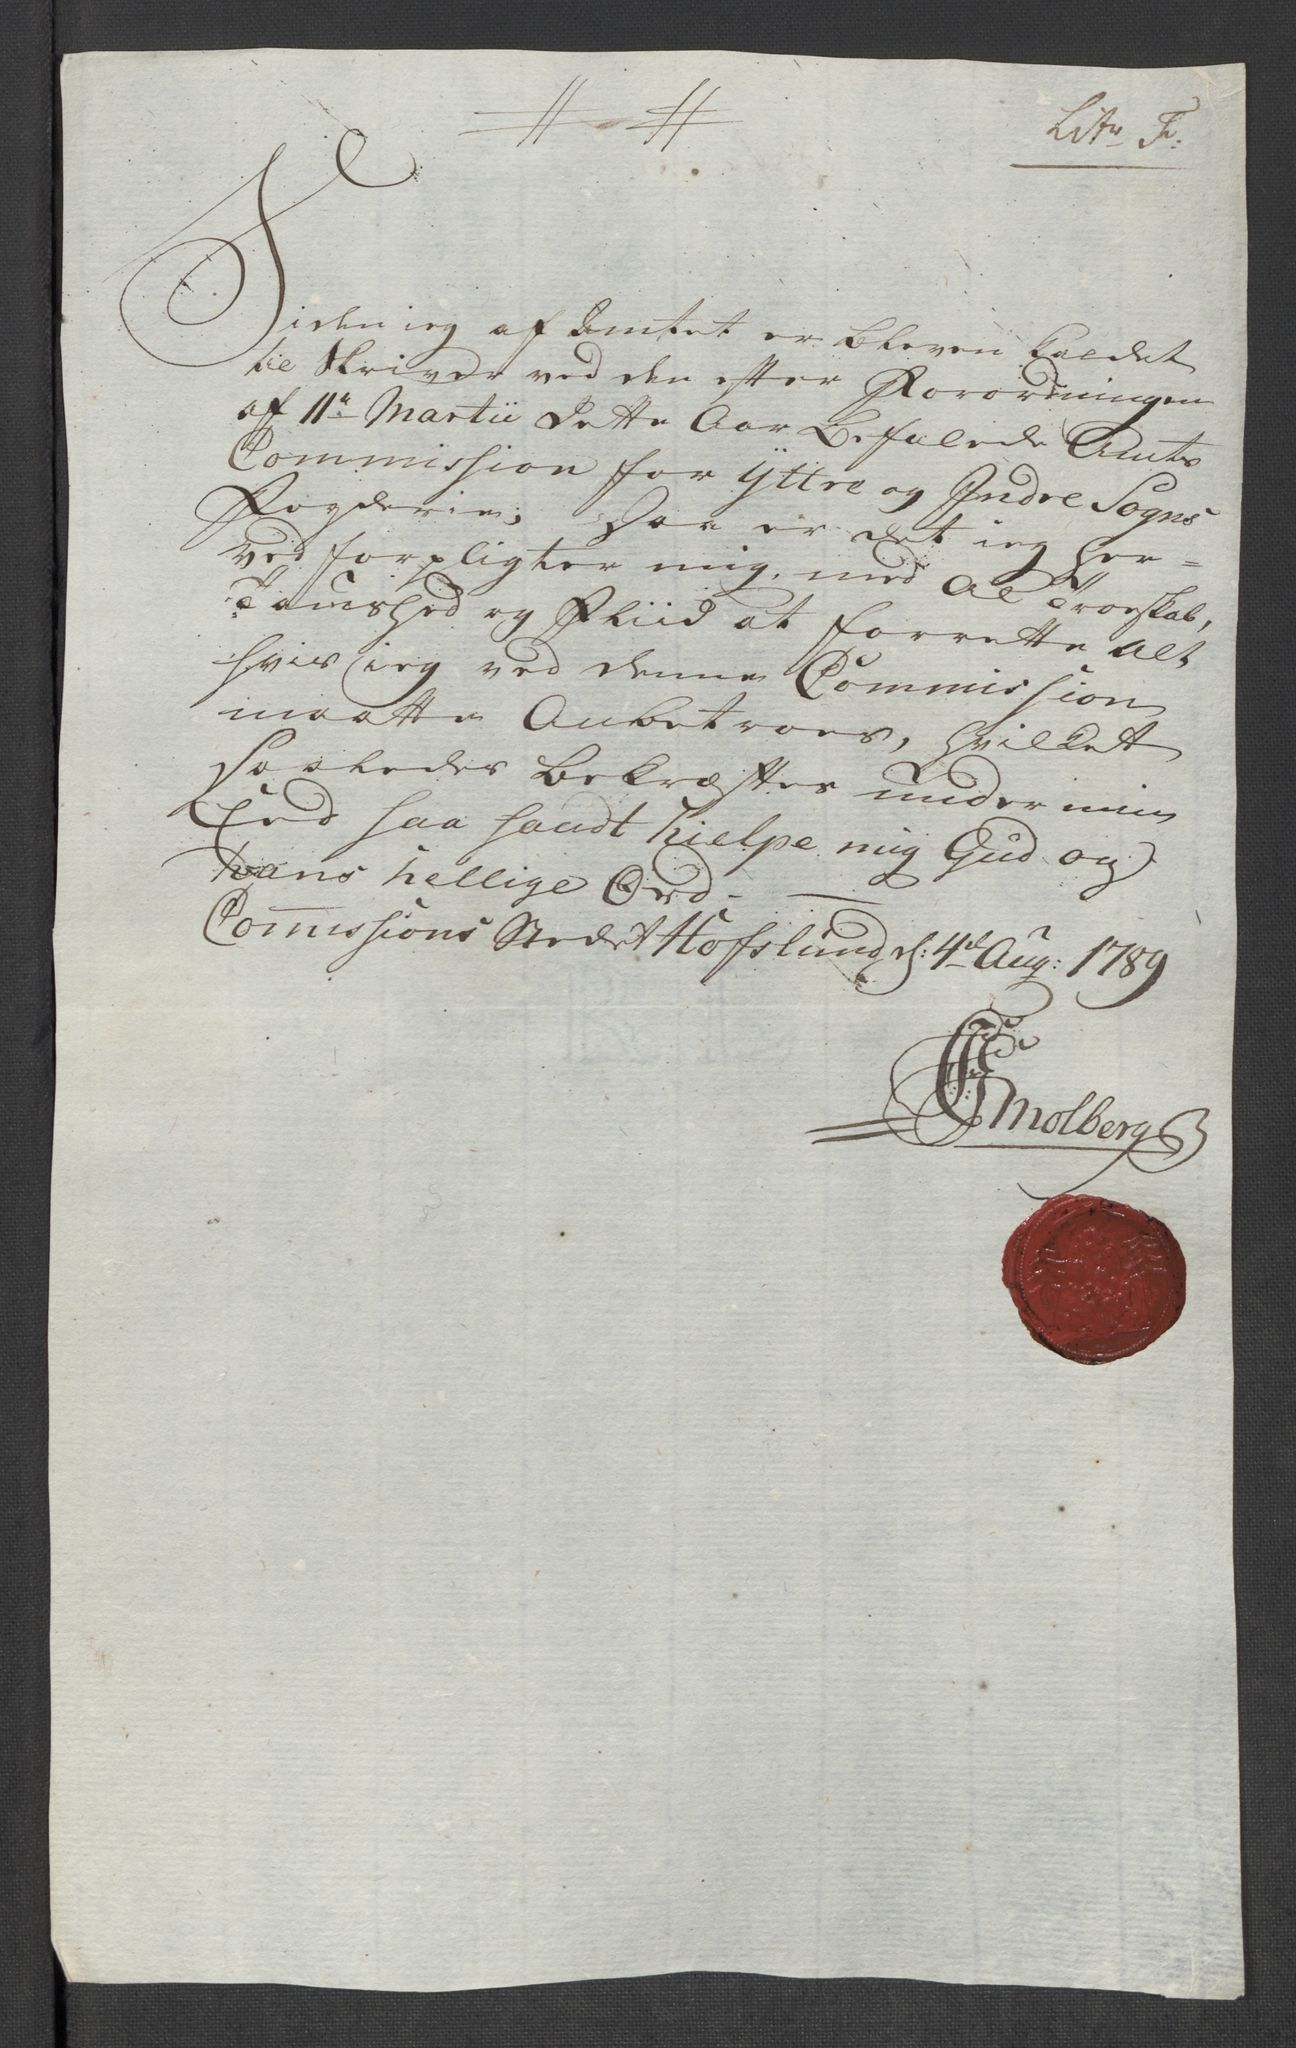 Litr F:
Siden ieg af Amtet er bleven kaldet
til Skriver ved den efter Forordningen
af 11te Martii dette Aar befalede Amts
Commission for Yttre og Indre Sogns
Fogderie; Saa er det ieg her=
ved forpligter mig, med al Troeskab,
Taushed og Fliid at forrette alt
hvis ieg ved denne Commission
maatte Anbetroes, hvilket
saaledes bekræftes under min
Eed saa sandt hielpe mig Gud og
hans hellige Ord.
Commissions Stedet Hofslund d: 4de Aug: 1789
Molberg